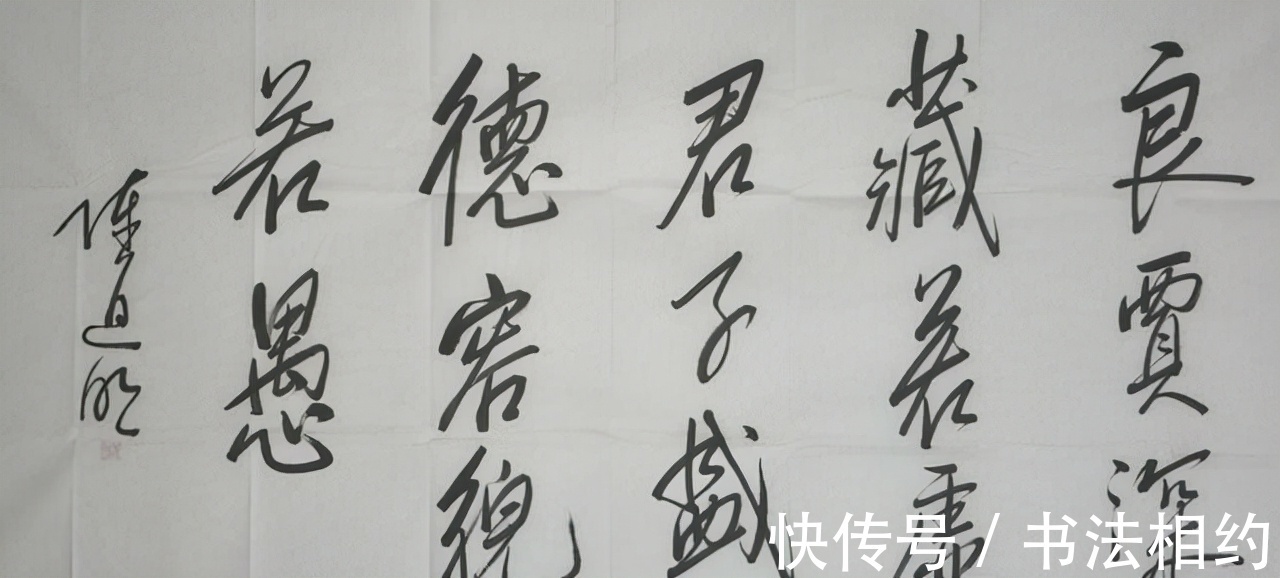 良賈深
藏若虛
君子盛
德容貌
若愚
陳道明
快传号 / 书法相约